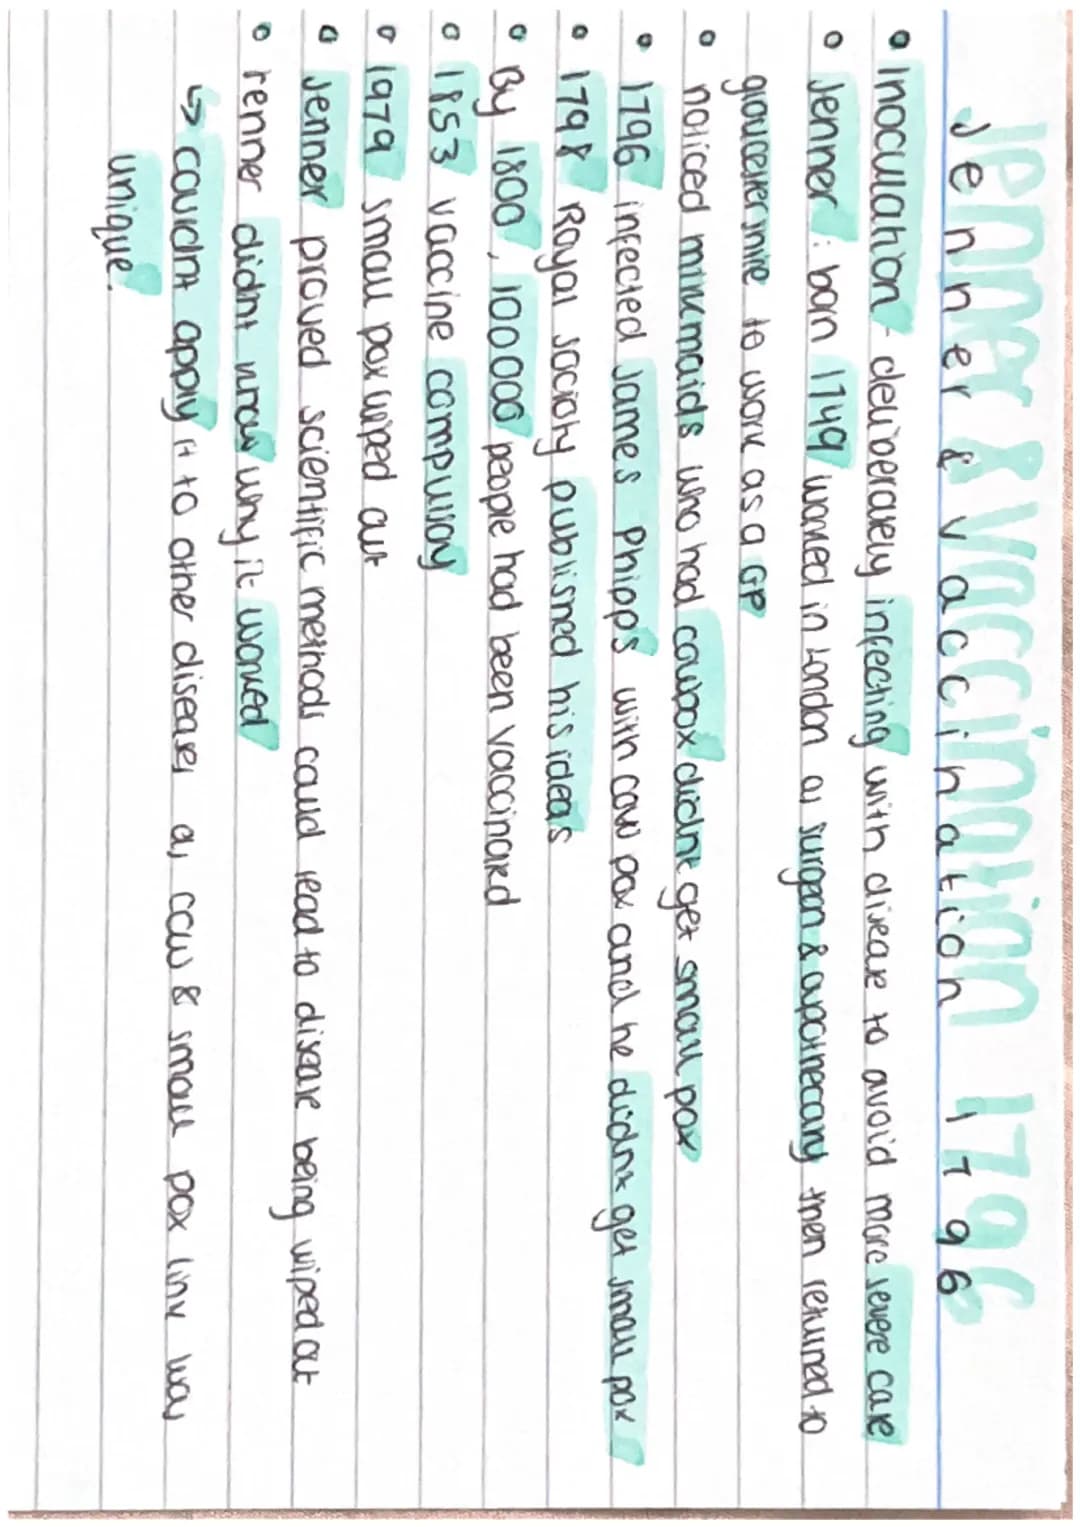 Jenner & Vaccination 1796
• Inoculation - deliberately infecting with disease to avoid more severe case
• Jenner : born 1749 worked in London as surgeon & apothecary then returned to
gloucestershire to work as a GP
• noticed milkmaids who had cowpox didnt get small pox
• 1796 infected James Phipps with cow pox and he didnt get small pox
• 1798 Royal society published his ideas
• By 1800, 100000 people had been vaccinated
• 1853 vaccine compulsory
• 1979 small pox wiped out
• Jenner proved scientific methods could lead to disease being wiped out
• Jenner didnt know why it worked
↳ couldnt apply it to other diseases as cow & small pox link was
unique.